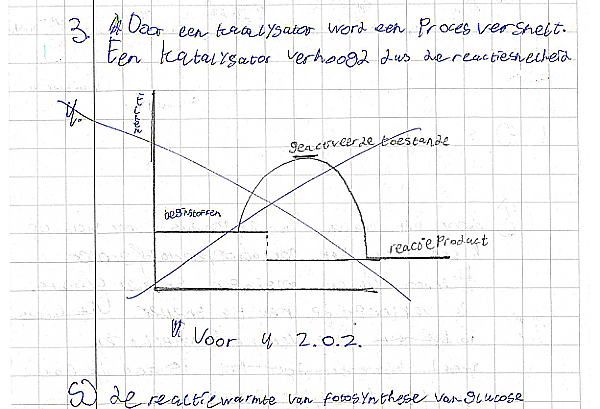 3. Door een kaalysator word een Proces versnelt.
Een katalysator verhoogd dus de reactiesnelheid
4.
geactiveerde toestande
beginstoffen
reactie Product
Voor 4 z.o.z.
5) de reactiewarmte van fotosynthese van glucose